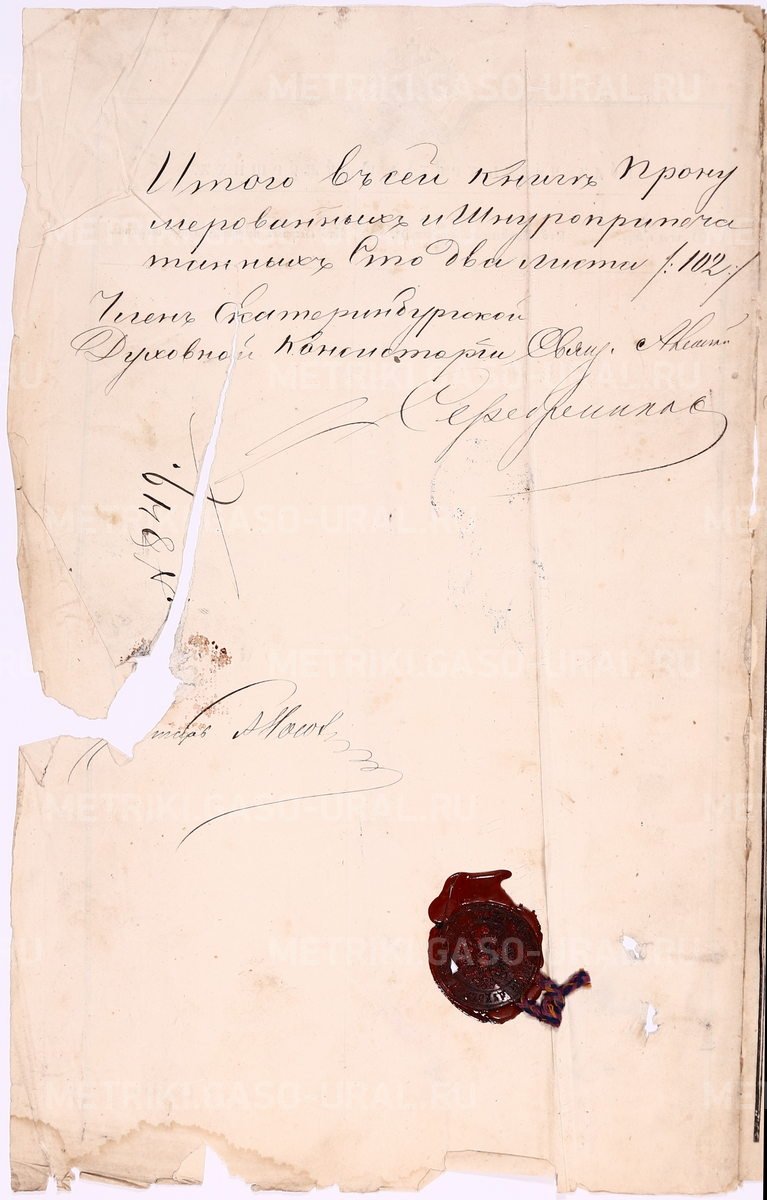 Итого въ сей книгѣ прону
мерованныхъ и шнуроприпеча
танныхъ Сто два листа /:102:/
Членъ Екатеринбургской
Духовной Консисторіи Свящ. Алексѣй
Серебренниковъ
№ 849.
тарь А Носов
METRIKI.GASO-URAL.RU